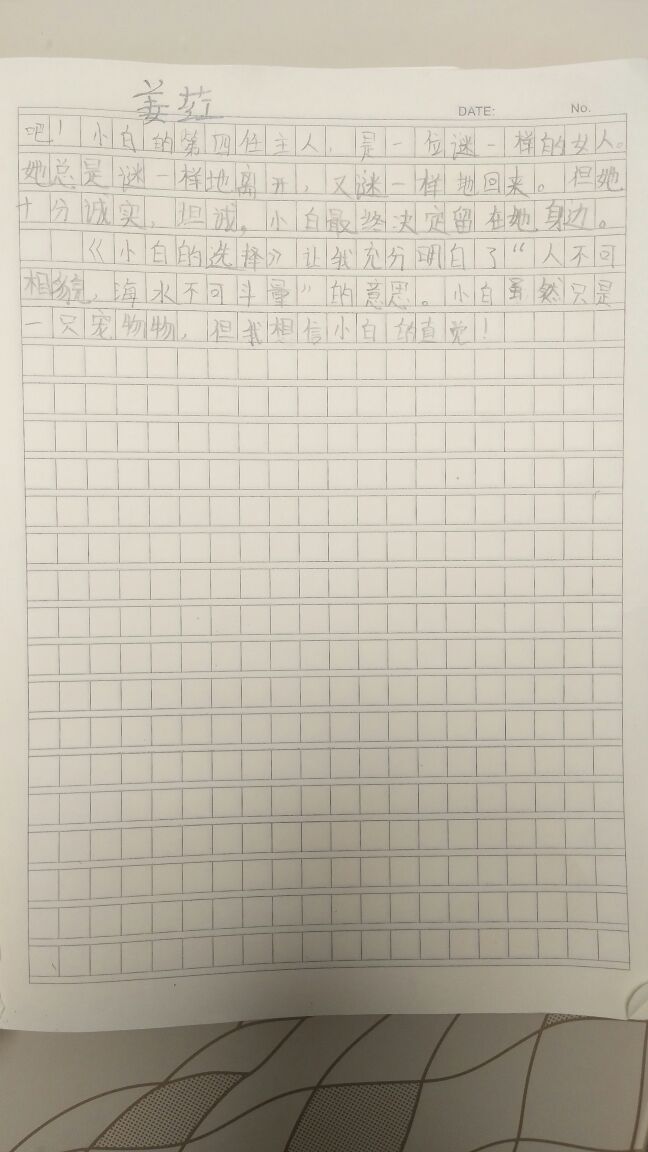 姜荭
DATE: No.
吧！小白的第四任主人，是一位谜一样的女人。
她总是谜一样地离开，又谜一样地回来。但她
十分诚实，坦诚。小白最终决定留在她身边。
《小白的选择》让我充分明白了“人不可
相貌，海水不可斗量”的意思。小白虽然只是
一只宠物物，但我相信小白的直觉！